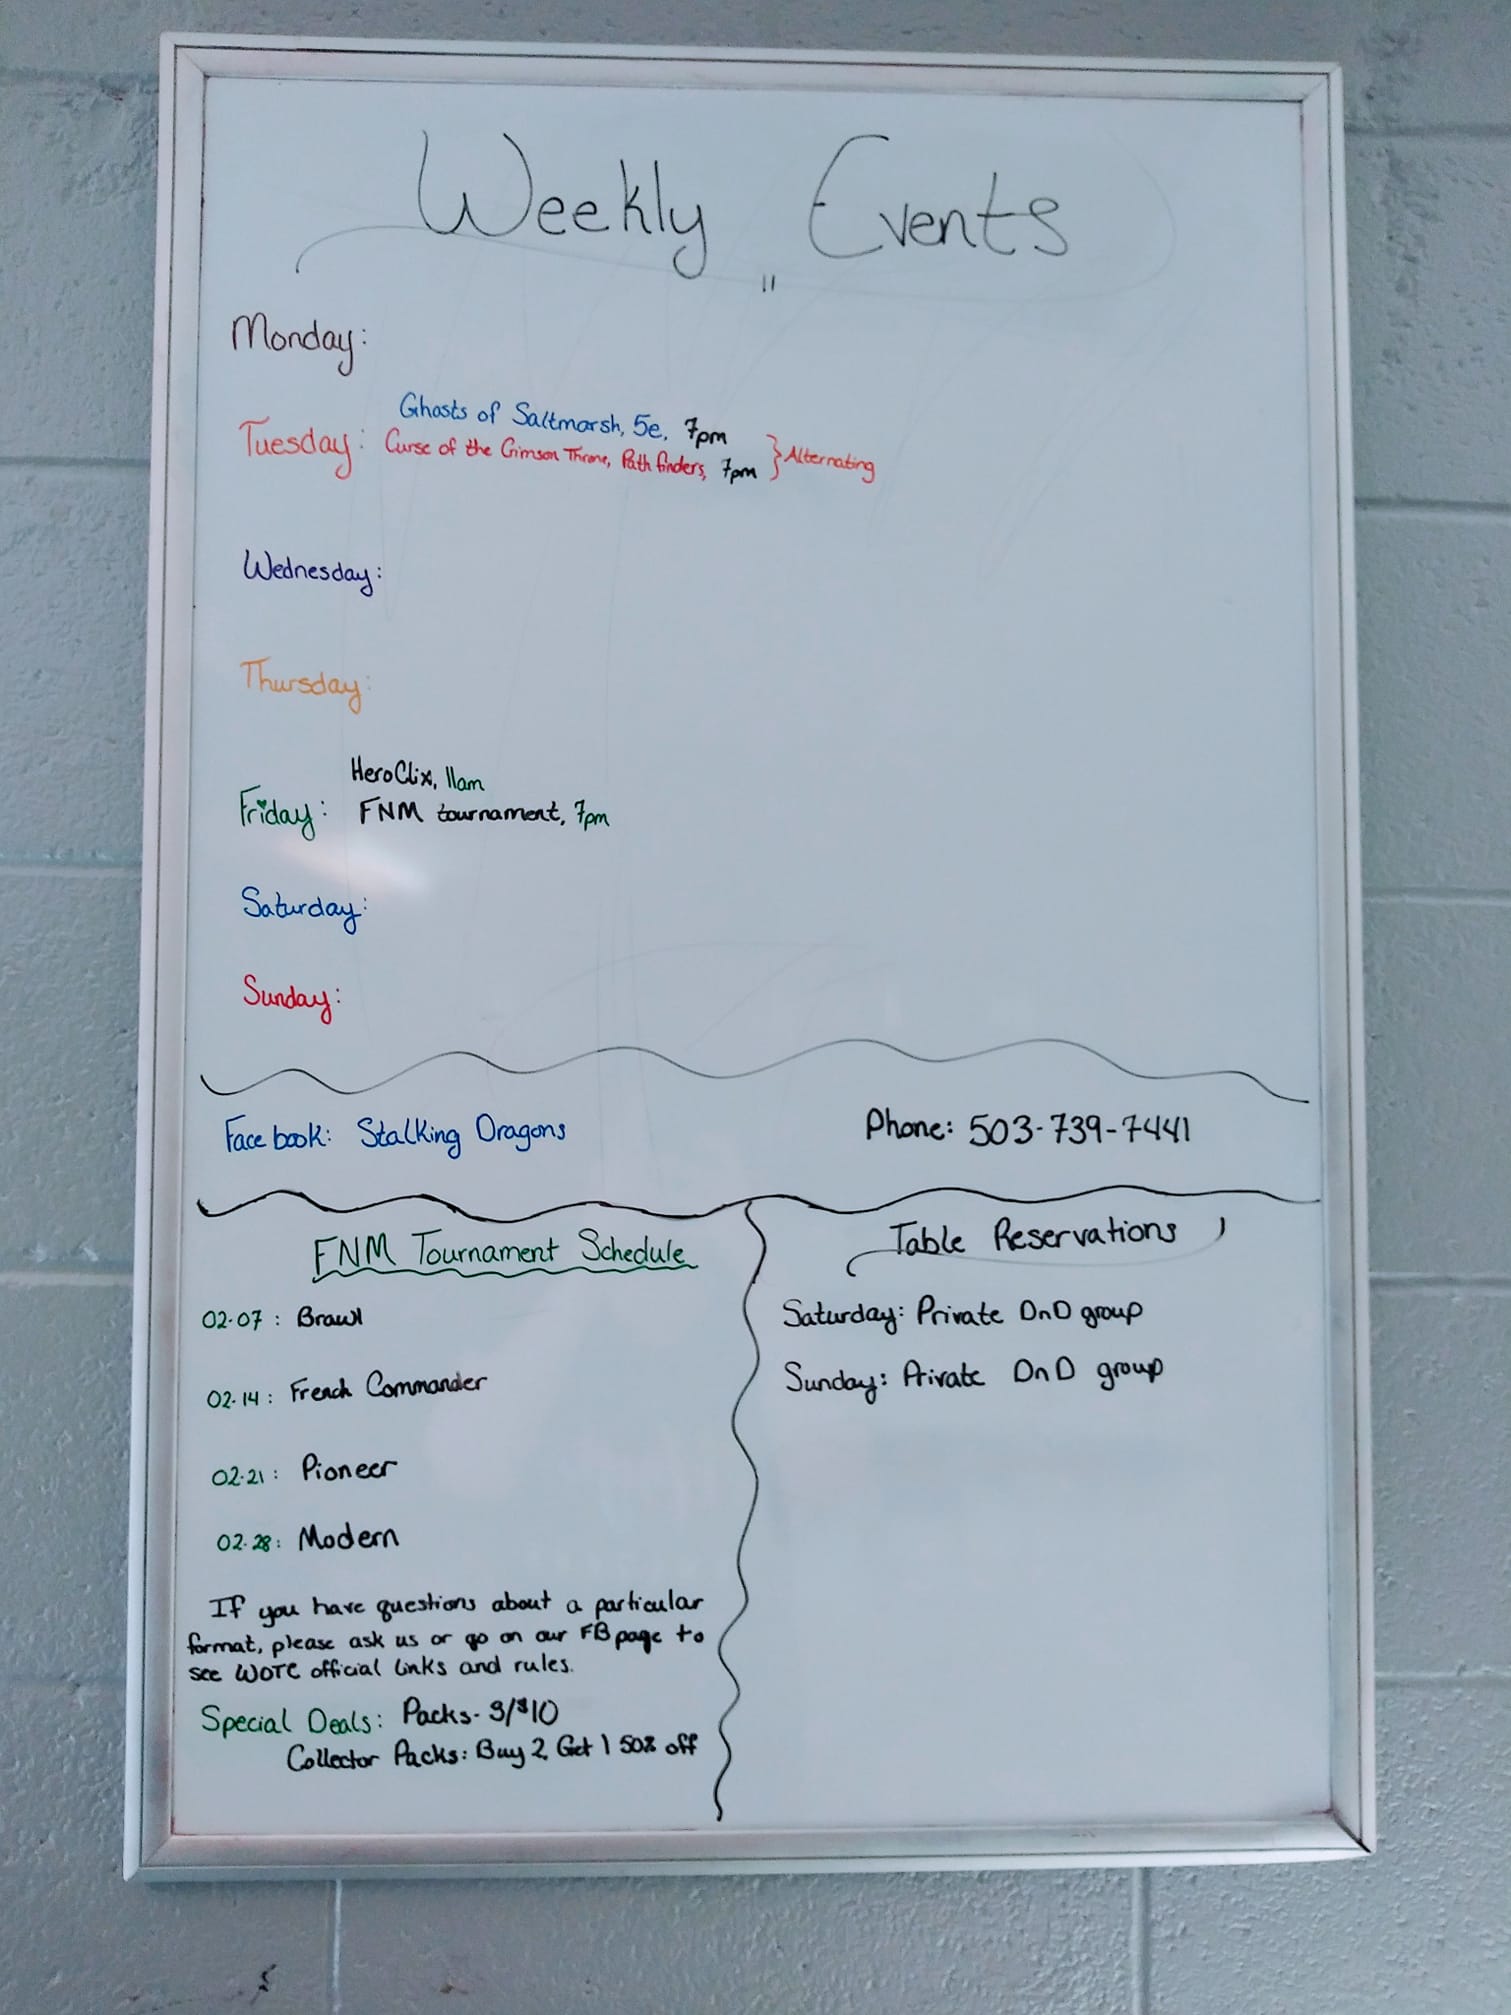 Weekly Events
Monday:
Ghosts of Saltmarsh, 5e, 7pm
Tuesday: Curse of the Crimson Throne, Path finders, 7pm } Alternating
Wednesday:
Thursday:
HeroClix, 11am
Friday: FNM tournament, 7pm
Saturday:
Sunday:
Facebook: Stalking Dragons
Phone: 503-739-7441
FNM Tournament Schedule
02-07: Brawl
02-14: French Commander
02-21: Pioneer
02-28: Modern
If you have questions about a particular
format, please ask us or go on our FB page to
see WOTC official links and rules.
Special Deals: Packs- 3/$10
Collector Packs: Buy 2, Get 1 50% off
Table Reservations
Saturday: Private DnD group
Sunday: Private DnD group